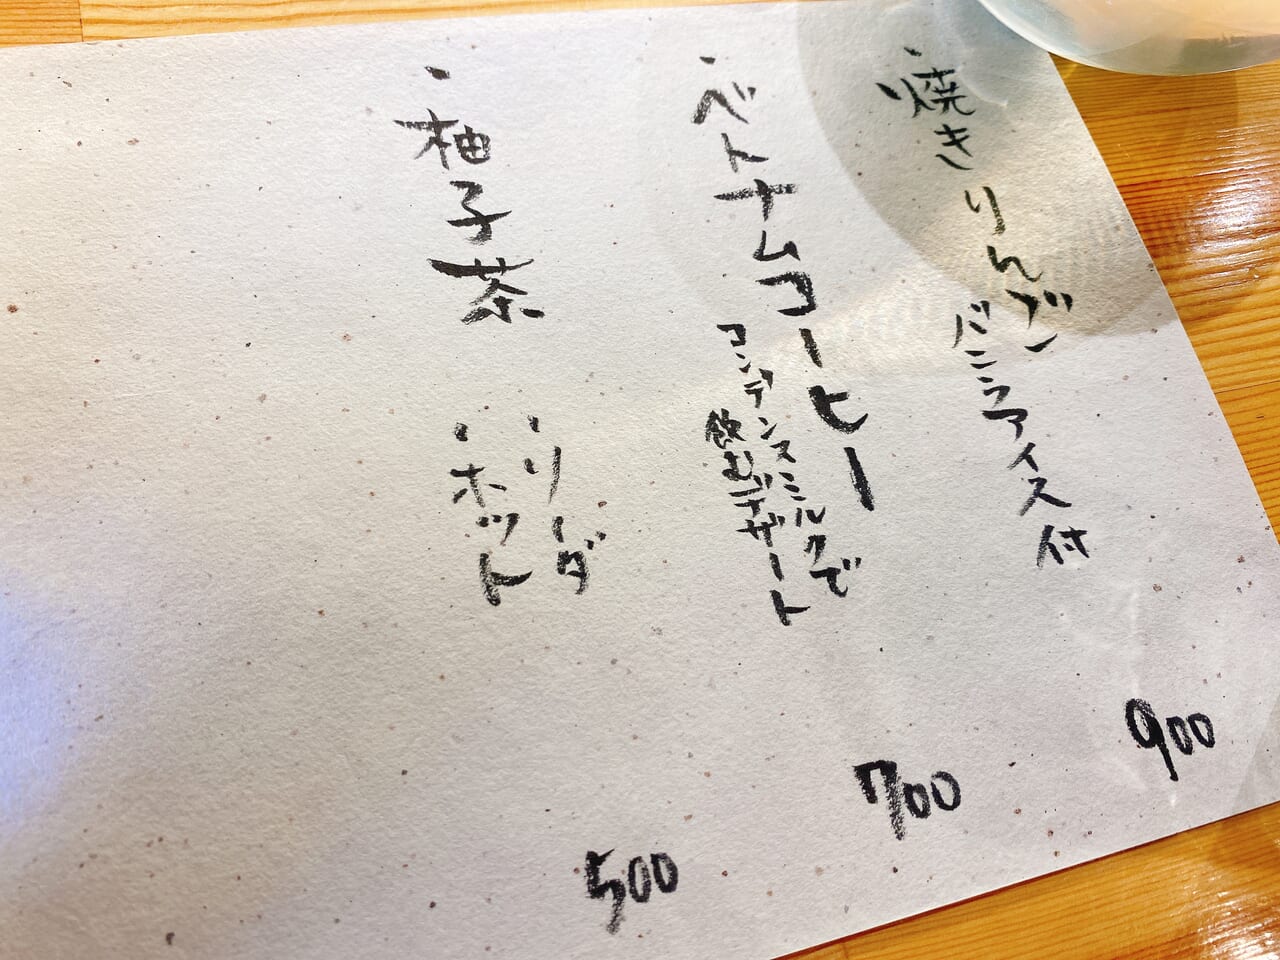 ・焼きりんご
バニラアイス付
900
・ベトナムコーヒー
コンデンスミルクで
飲むデザート
700
・柚子茶
・ソーダ
・ホット
500